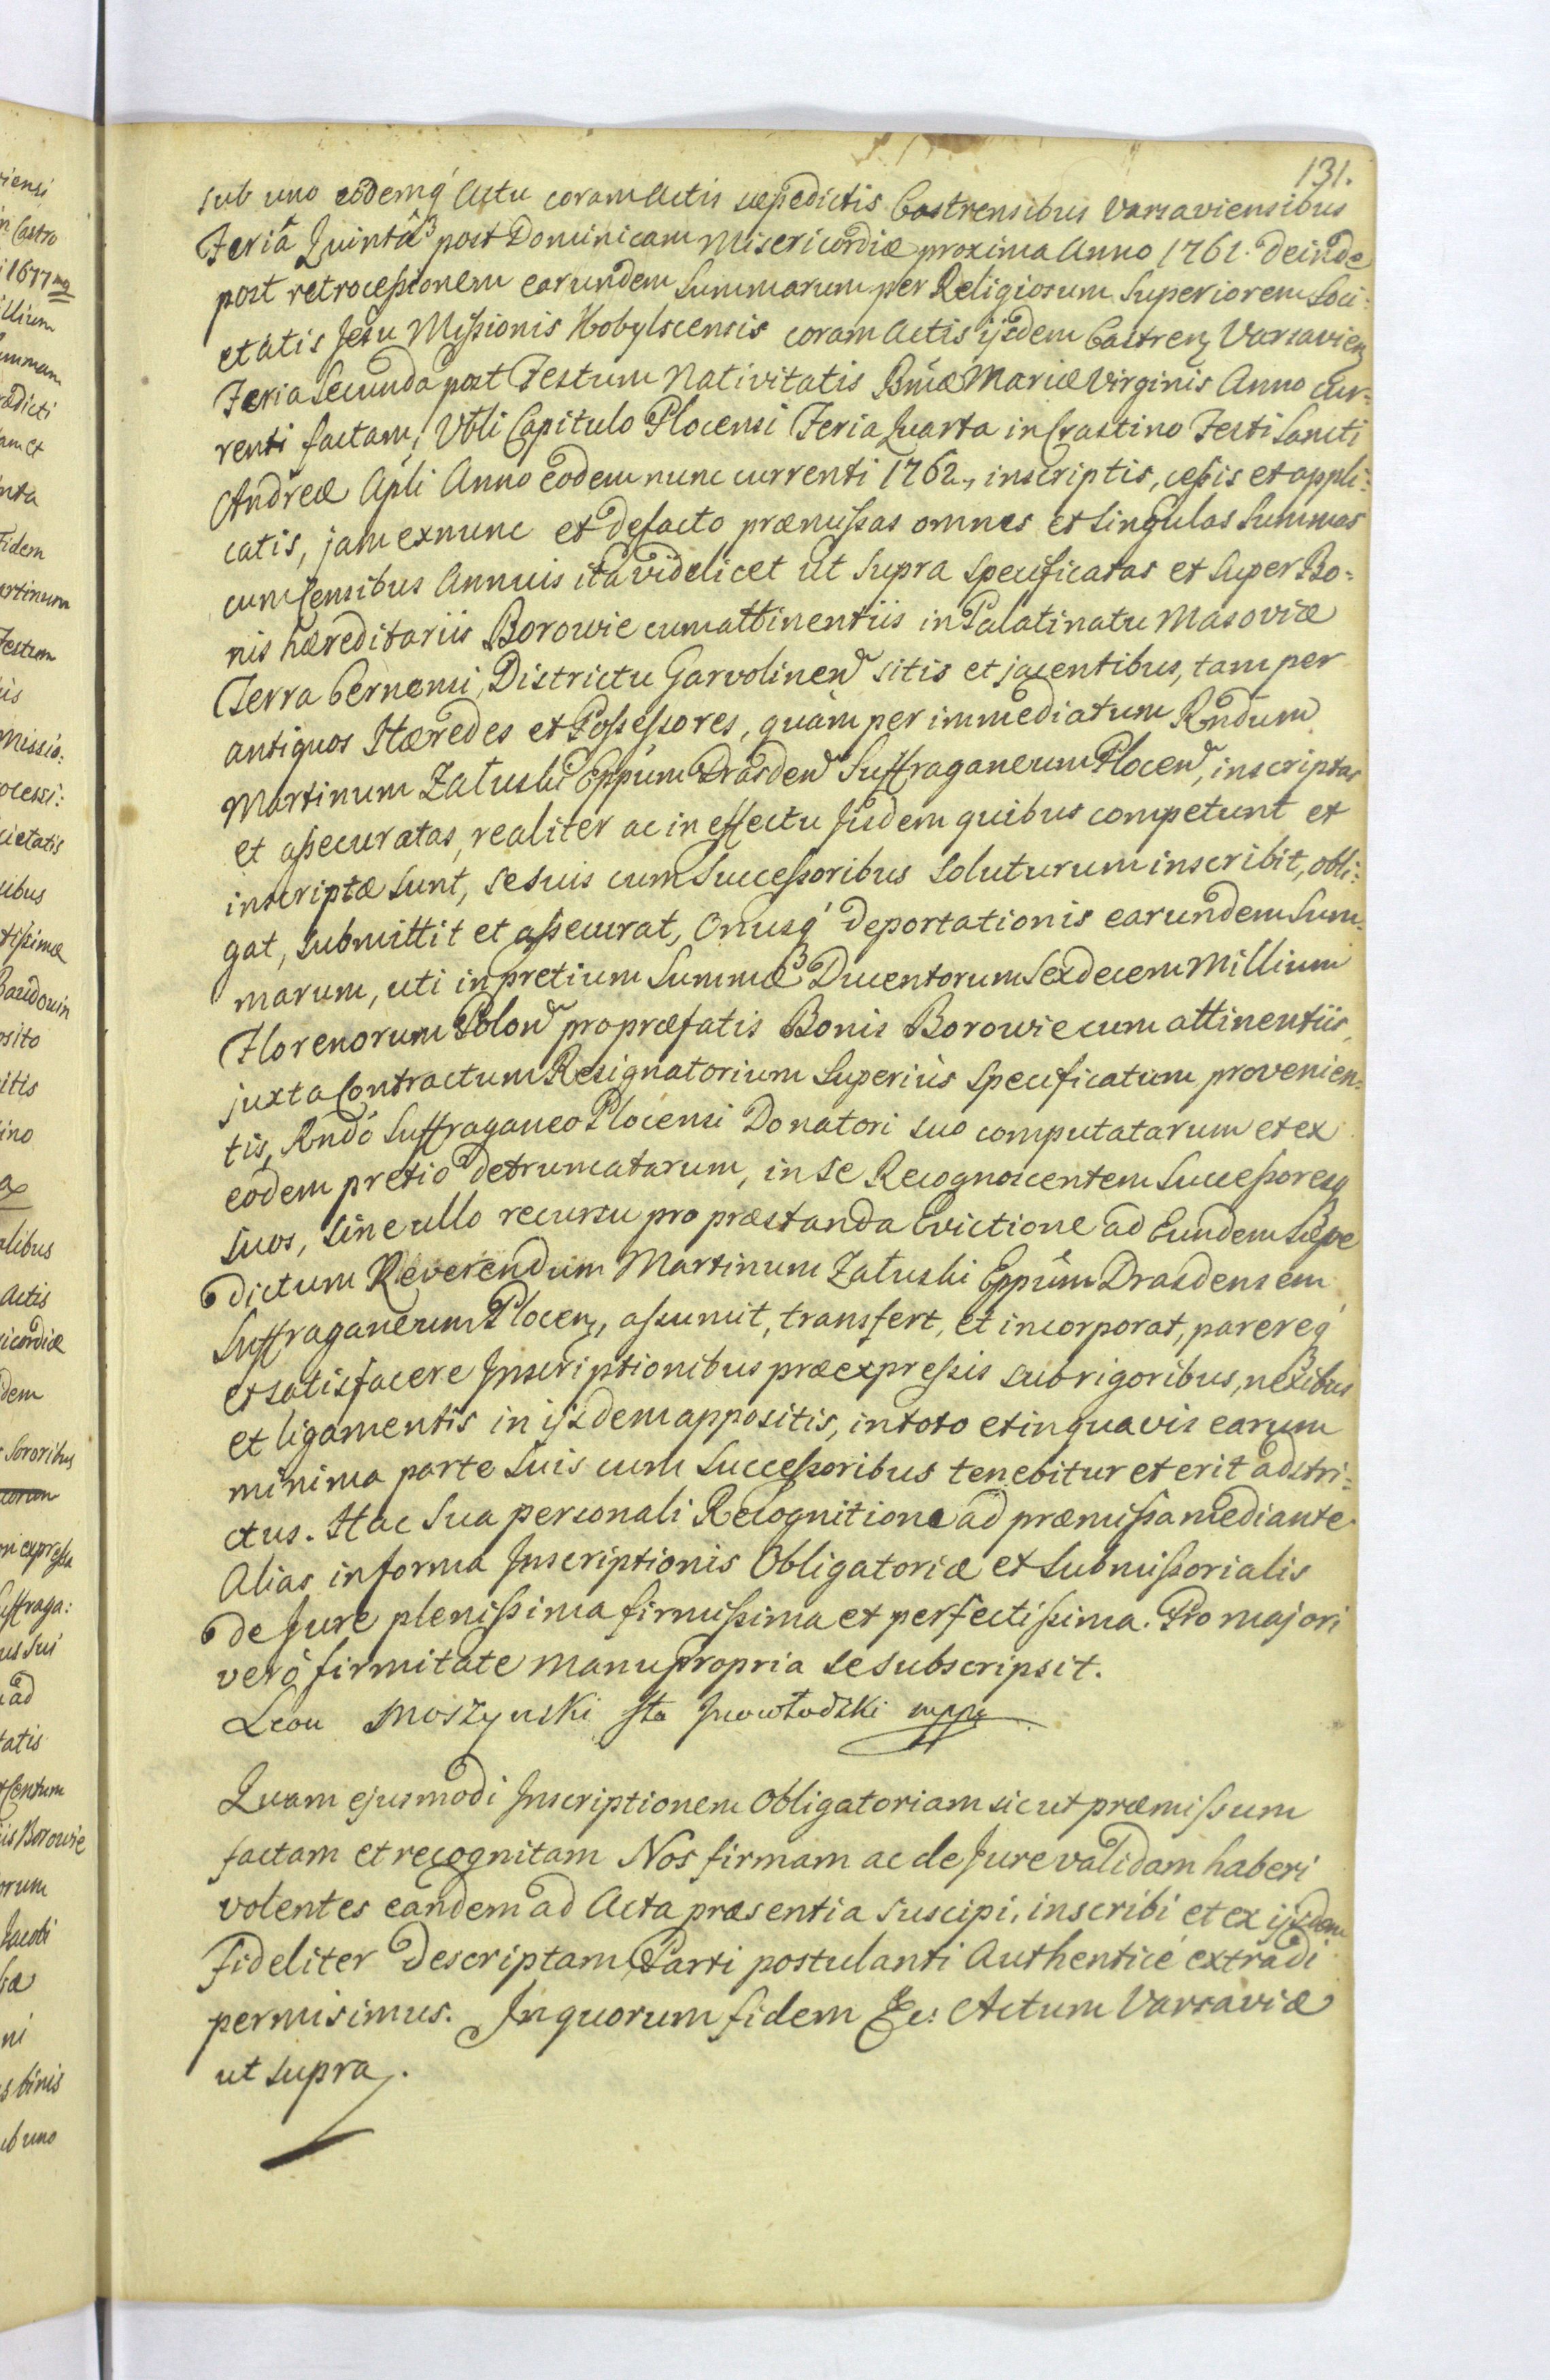 131.
sub uno eodemq́ Actu coram Actis sæpedictis Castrensibus Varsaviensibus
Feriâ Quintâ post Dominicam Misericordiæ proxima Anno 1761. deinde
post retrocessionem earundem Summarum per Religiosum Superiorem Soci:
etatis Jesu Missionis Kobylscensis coram Actis ijsdem Castren Varsavien
Feria Secunda post Festum Nativitatis Bmæ Mariæ Virginis Anno cur:
renti factam, Vbli Capitulo Plocensi Feria Quarta in Crastino Festi Sancti
Andreæ Apli Anno eodem nunc currenti 1762., inscriptis, cessis et appli:
catis, jam exnunc et defacto præmissas omnes et singulas Summas
cum Censibus Annuis ita videlicet ut supra specificatas et super Bo=
nis hæreditariis Borowie cum attinentiis in Palatinatu Masoviæ
Terra Cernensi, Districtu Garvolinen sitis et jacentibus, tam per
antiquos Hæredes et Possessores, quàm per immediatum Rndum
Martinum Załuski Eppum Drasden Suffraganeum Plocen, inscriptas
et assecuratas, realiter ac in effectu Jisdem quibus competunt et
inscriptæ sunt, se suis cum Successoribus soluturum inscribit, obli:
gat, submittit et assecurat, Onusq́ deportationis earundem Sum=
marum, uti in pretium Summæ Ducentorum Sexdecem Millium
Florenorum Polon pro præfatis Bonis Borowie cum attinentiis,
juxta Contractum Resignatorium Superiùs specificatum provenien=
tis, Rndo Suffraganeo Plocensi Donatori suo computatarum et ex
eodem pretio detruncatarum, in se Recognoscentem Successoresq
suos, sine ullo recursu pro præstanda Evictione ad Eundem sæpe
dictum Reverendum Martinum Załuski Eppum Drasdensem
Suffraganeum Plocen, assumit, transfert, et incorporat, parereq́
et satisfacere Inscriptionibus præexpressis sub rigoribus, nexibus
et ligamentis in ijsdem appositis, in toto et in quavis earum
minima parte suis cum Successoribus tenebitur et erit adstri:
ctus. Hac sua personali Recognitione ad præmissa mediante
Alias in forma Inscriptionis Obligatoriæ et Submissorialis
de Jure plenissima firmissima et perfectissima. Pro majori
verò firmitate manu propria se subscripsit.
Leon Moszynski Sta Inowłodzki mppa
Quam ejusmodi Inscriptionem Obligatoriam sicut præmissum
factam et recognitam Nos firmam ac de Jure validam haberi
volentes eandem ad Acta præsentia suscipi, inscribi et ex ijsdem
fideliter descriptam Parti postulanti Authenticè extradi
permisimus. In quorum fidem &c: Actum Varsaviæ
ut supra.